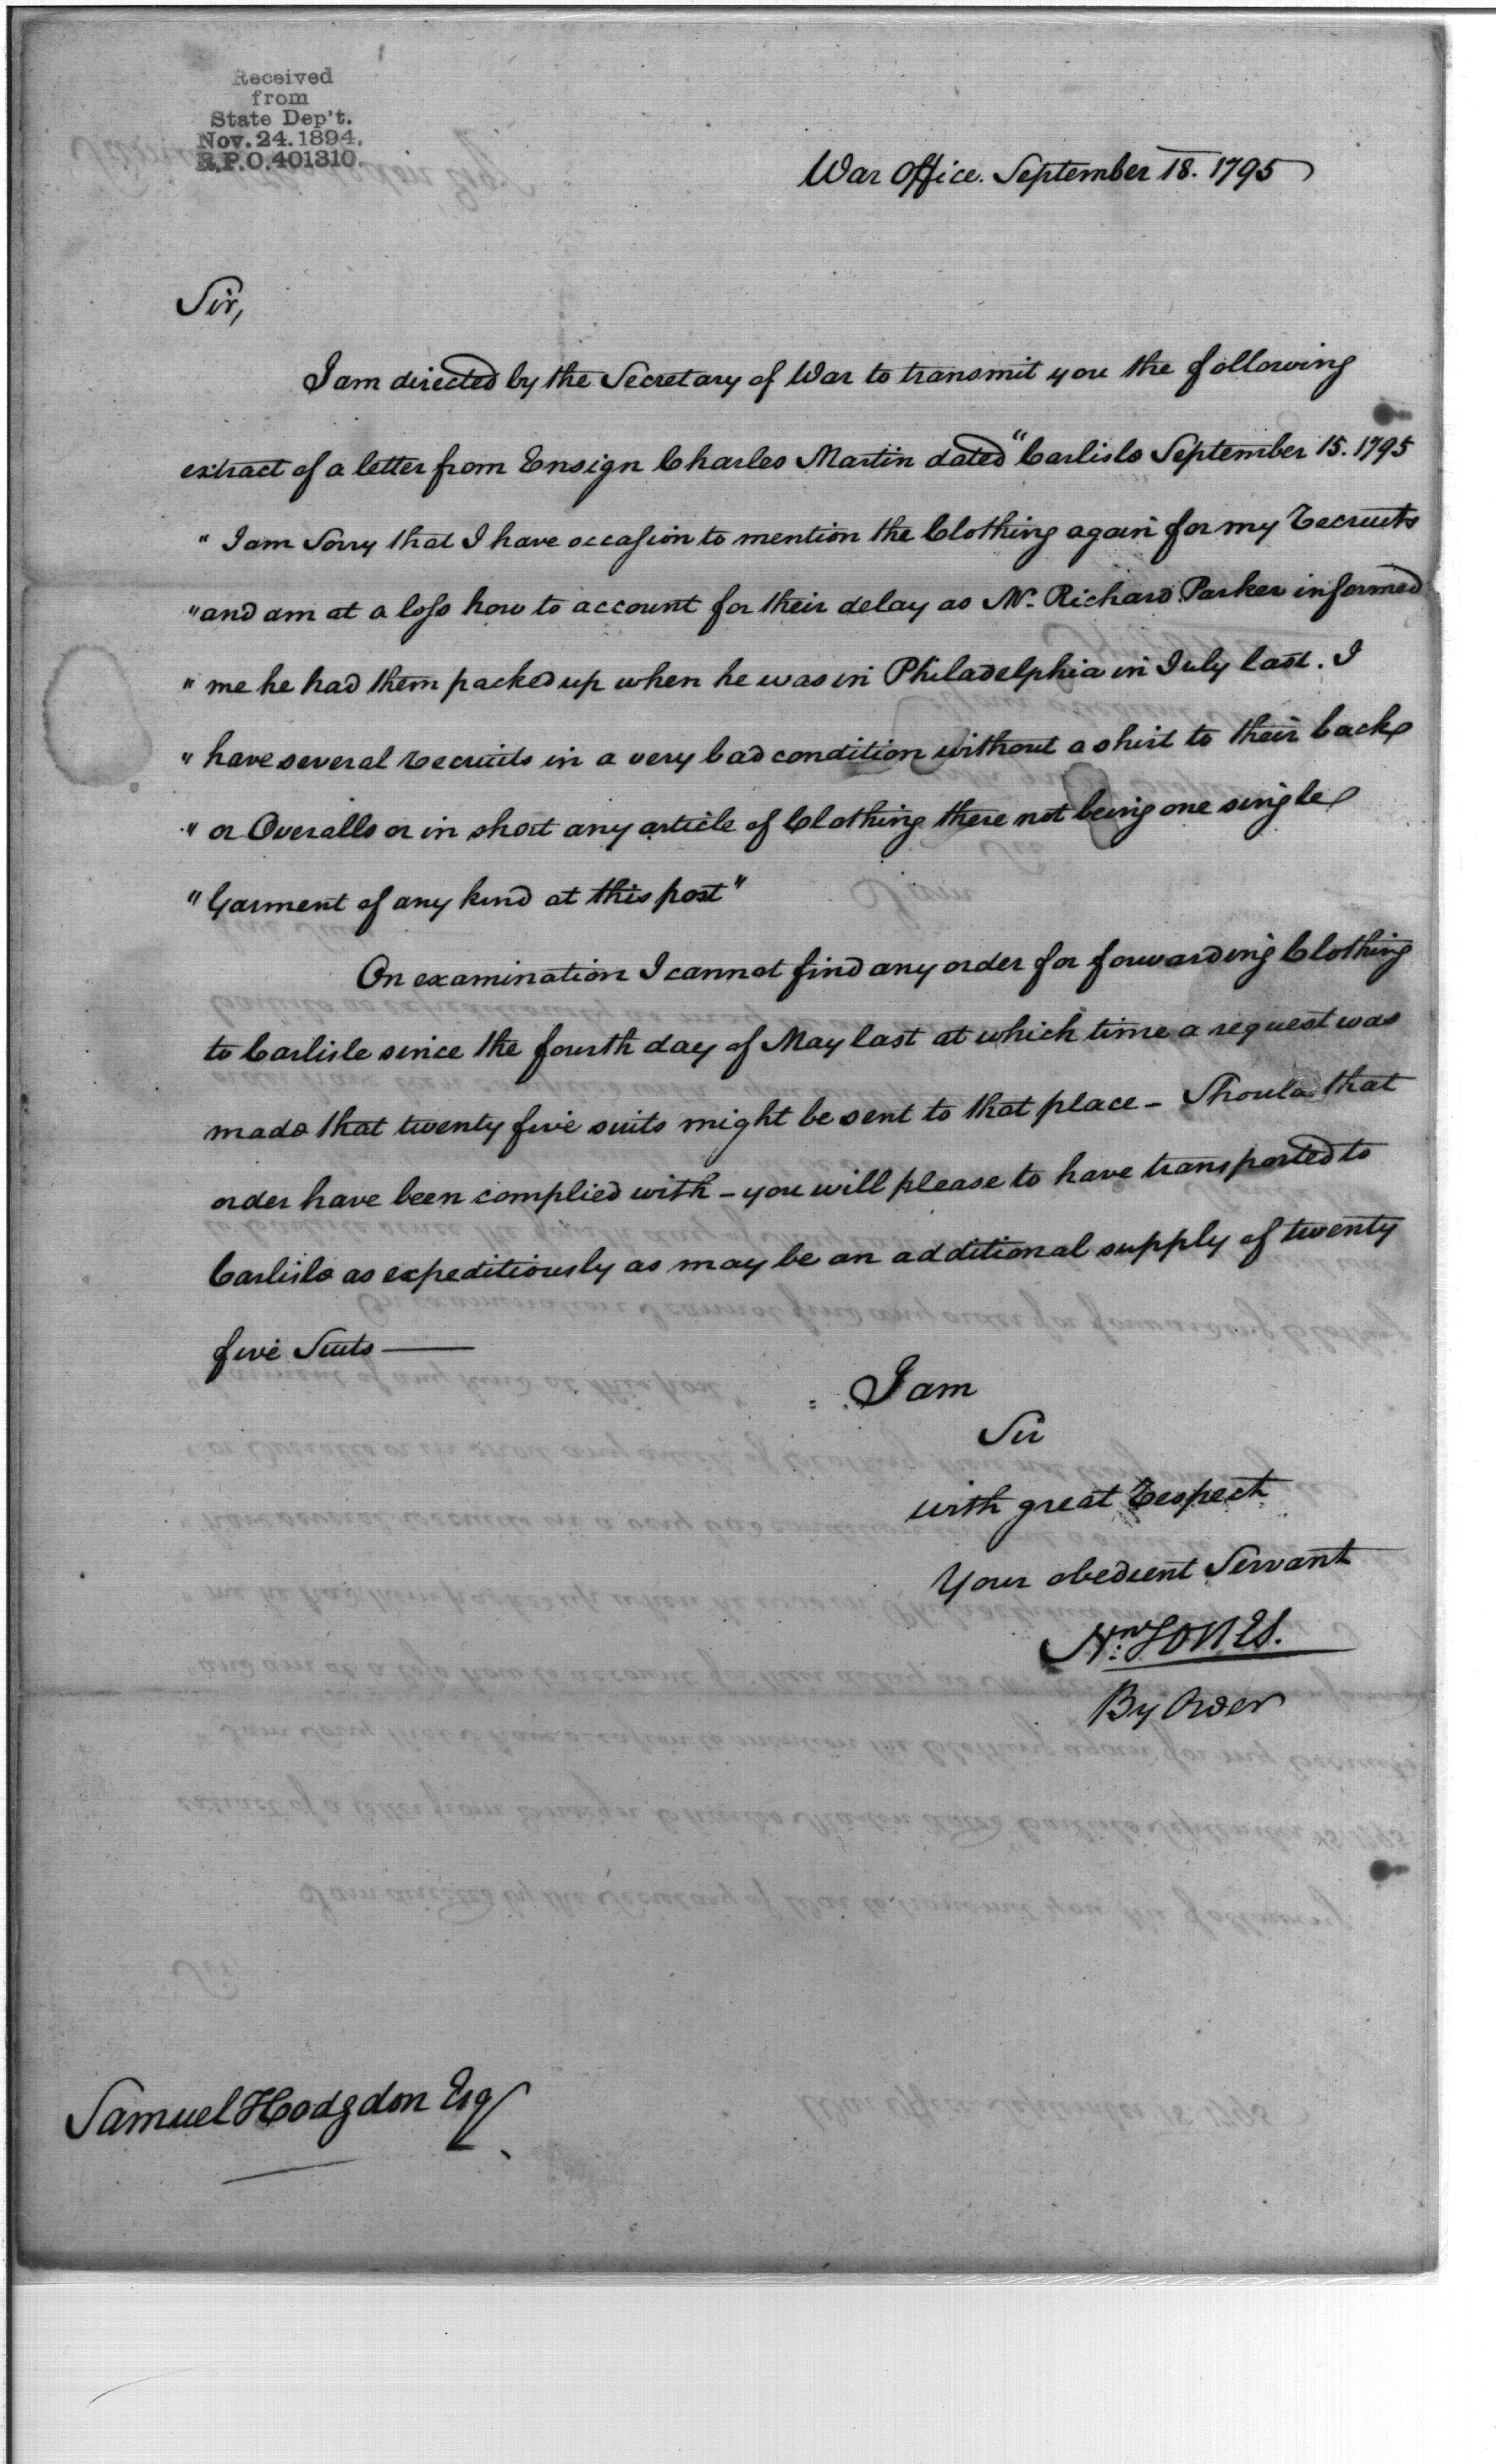 Received
from
State Dep't.
Nov. 24. 1894.
R.P.O. 401310.
War Office. September 18. 1795
Sir,
I am directed by the Secretary of War to transmit you the following
extract of a letter from Ensign Charles Martin dated "Carlisle September 15. 1795
" I am Sorry that I have occasion to mention the Clothing again for my Recruits
" and am at a loss how to account for their delay as Mr. Richard Parker informed
" me he had them packed up when he was in Philadelphia in July last. I
" have several recruits in a very bad condition without a shirt to their backs
" or Overalls or in short any article of Clothing there not being one single
" Garment of any kind at this post"
On examination I cannot find any order for forwarding Clothing
to Carlisle since the fourth day of May last at which time a request was
made that twenty five suits might be sent to that place - Should that
order have been complied with - you will please to have transported to
Carlisle as expeditiously as may be an additional supply of twenty
five Suits —
I am
Sir
with great Respect
Your obedient Servant
Jones.
By Order
Samuel Hodgdon Esq